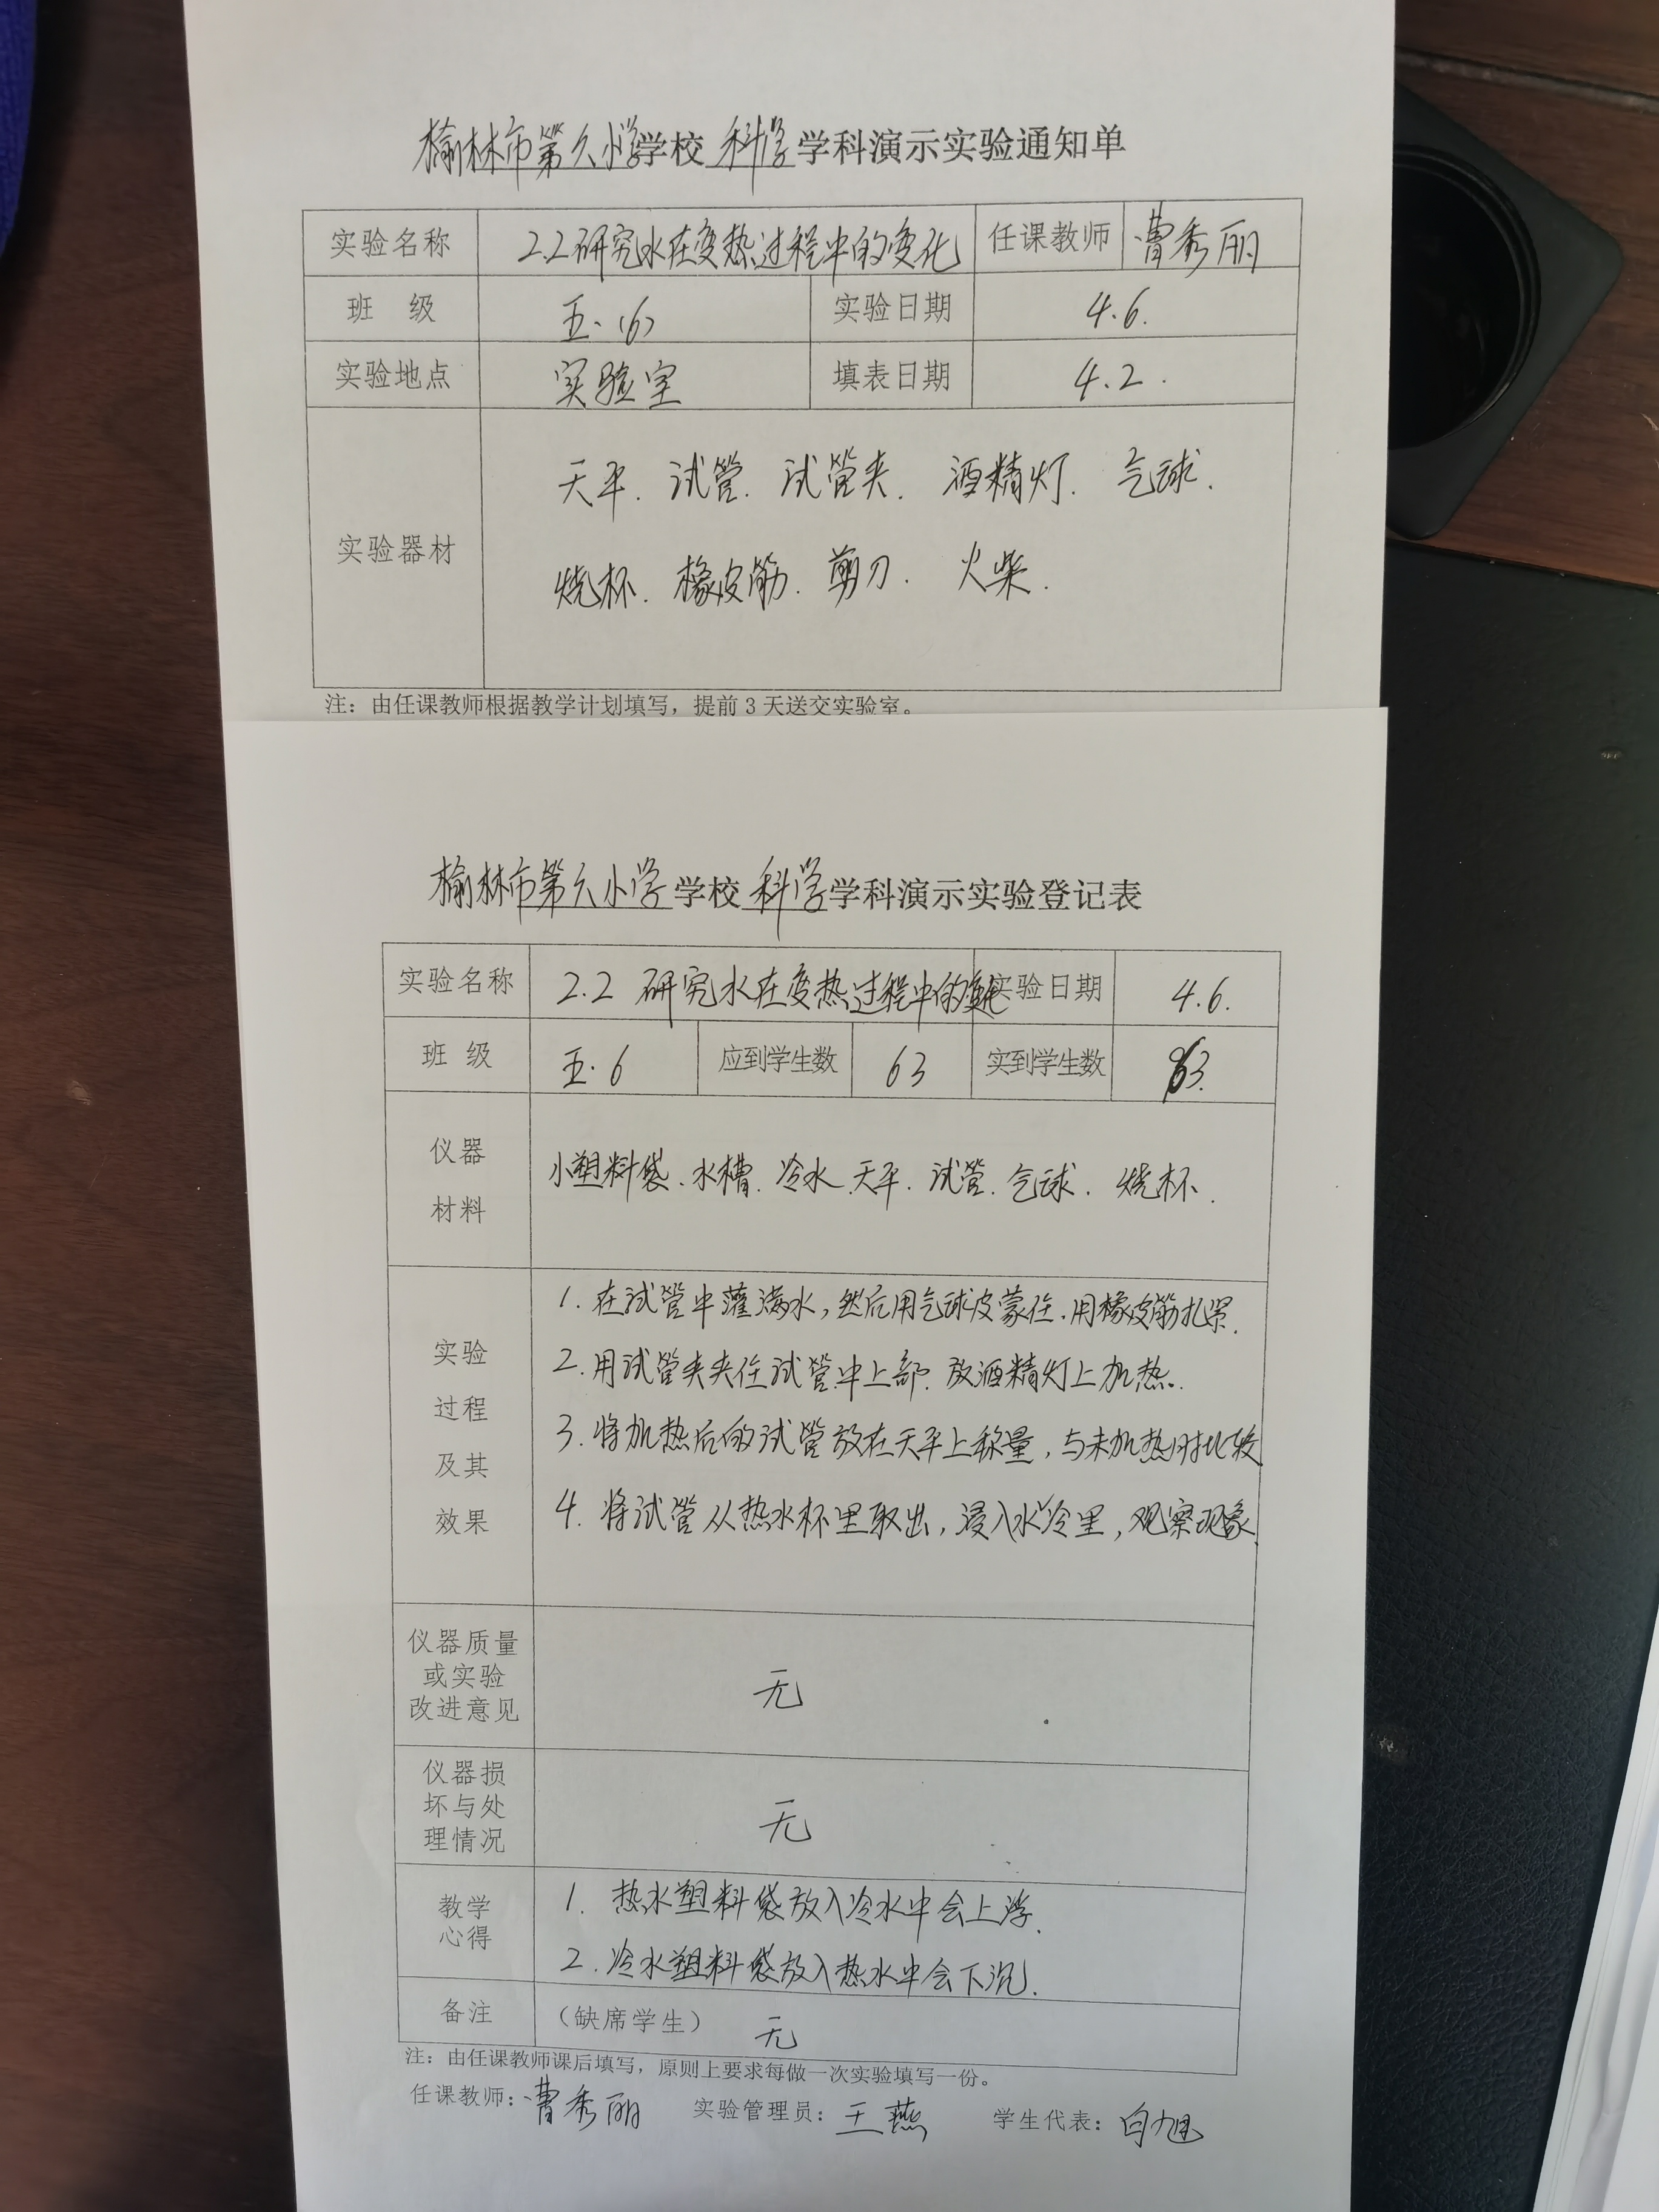 榆林市第六小学学校 科学 学科演示实验通知单
实验名称 2.2研究水在变热过程中的变化 任课教师 曹秀丽
班 级 五·(6) 实验日期 4.6.
实验地点 实验室 填表日期 4.2.
实验器材
天平. 试管. 试管夹. 酒精灯. 气球.
烧杯. 橡皮筋. 剪刀. 火柴.
注：由任课教师根据教学计划填写，提前 3 天送交实验室。
榆林市第六小学 学校 科学 学科演示实验登记表
实验名称 2.2 研究水在变热过程中的变化 实验日期 4.6.
班 级 五.6 应到学生数 63 实到学生数 63.
仪器
材料
小塑料袋. 水槽. 冷水. 天平. 试管. 气球. 烧杯.
实验
过程
及其
效果
1. 在试管中灌满水, 然后用气球皮蒙住. 用橡皮筋扎紧.
2. 用试管夹夹住试管中上部. 放酒精灯上加热.
3. 将加热后的试管放在天平上称量, 与未加热时比较
4. 将试管从热水杯里取出, 浸入水冷里, 观察现象.
仪器质量
或实验
改进意见
无
仪器损
坏与处
理情况
无
教学
心得
1. 热水塑料袋放入冷水中会上浮.
2. 冷水塑料袋放入热水中会下沉.
备注 （缺席学生） 无
注：由任课教师课后填写，原则上要求每做一次实验填写一份。
任课教师：曹秀丽 实验管理员：王燕 学生代表：白旭